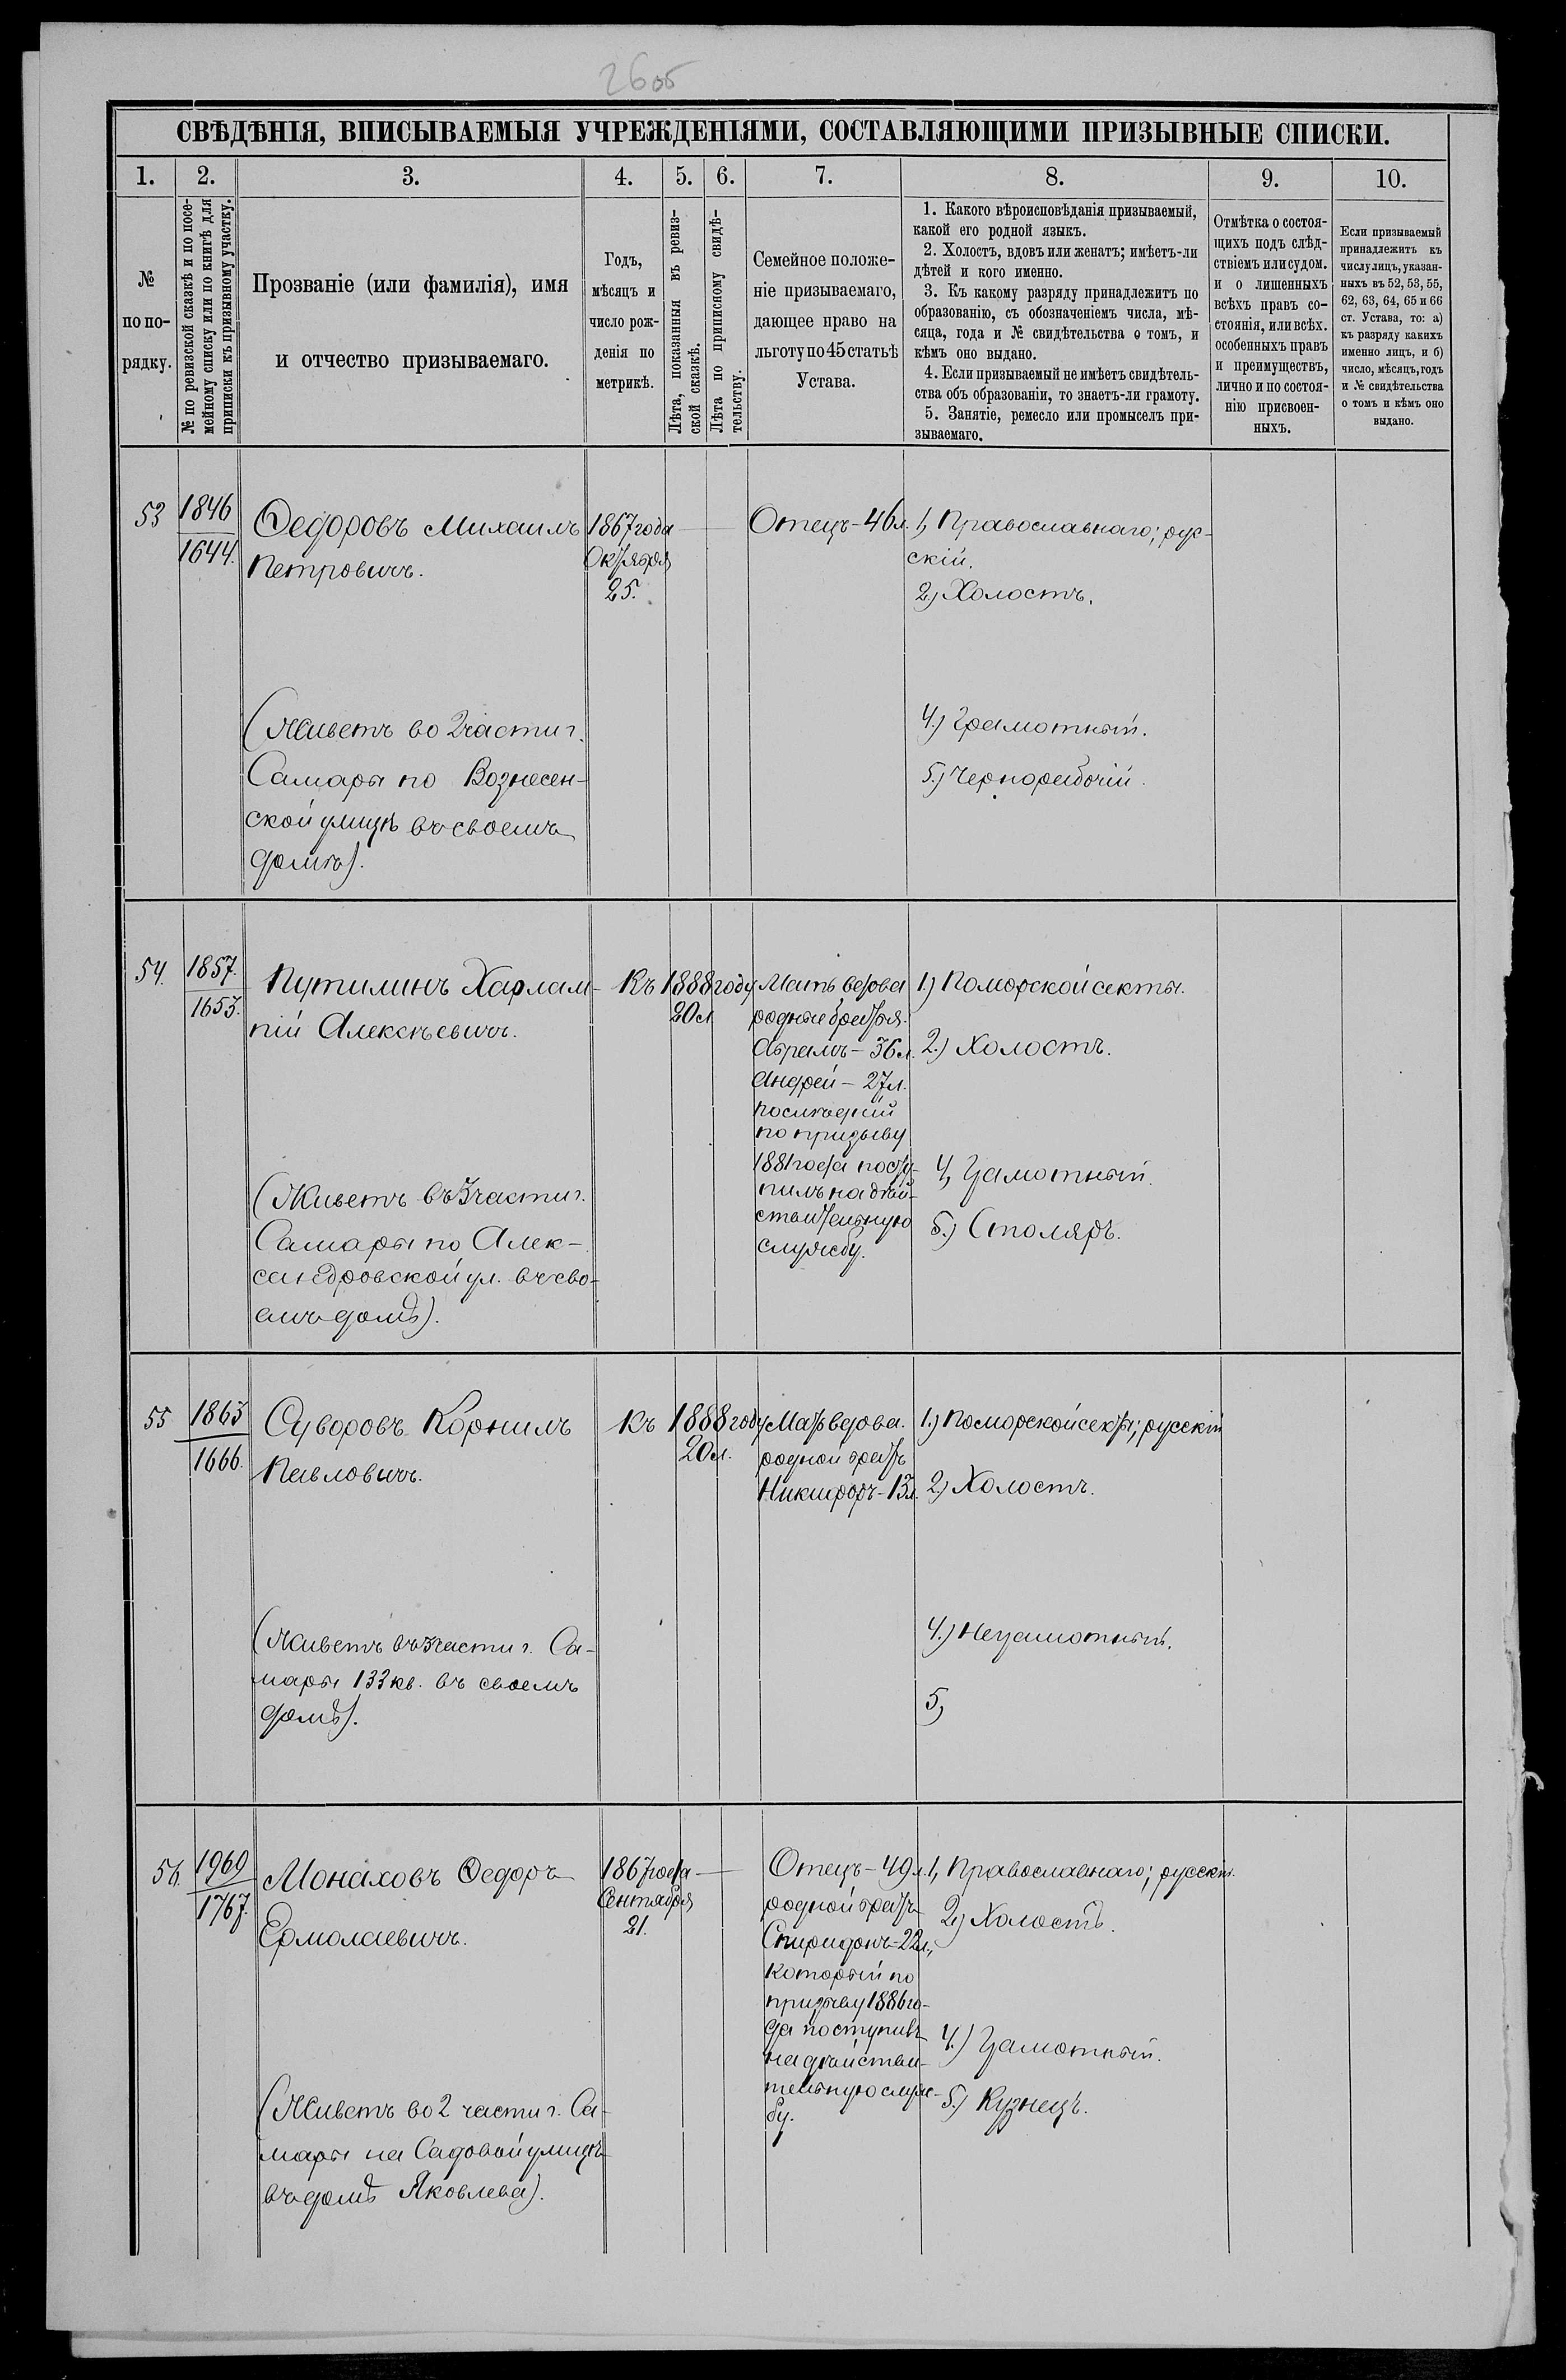 26об
СВѢДѢНІЯ, ВПИСЫВАЕМЫЯ УЧРЕЖДЕНІЯМИ, СОСТАВЛЯЮЩИМИ ПРИЗЫВНЫЕ СПИСКИ.
1.
2.
3.
4.
5.
6.
7.
8.
9.
10.
№
по по-
рядку.
№ по ревизской сказкѣ и по посе-
мейному списку или по книгѣ для
приписки къ призывному участку.
Прозваніе (или фамилія), имя
и отчество призываемаго.
Годъ,
мѣсяцъ и
число рож-
денія по
метрикѣ.
Лѣта, показанныя въ ревиз-
ской сказкѣ.
Лѣта по приписному свидѣ-
тельству.
Семейное положе-
ніе призываемаго,
дающее право на
льготу по 45 статьѣ
Устава.
1. Какого вѣроисповѣданія призываемый,
какой его родной языкъ.
2. Холостъ, вдовъ или женатъ; имѣетъ-ли
дѣтей и кого именно.
3. Къ какому разряду принадлежитъ по
образованію, съ обозначеніемъ числа, мѣ-
сяца, года и № свидѣтельства о томъ, и
кѣмъ оно выдано.
4. Если призываемый не имѣетъ свидѣтель-
ства объ образованіи, то знаетъ-ли грамоту.
5. Занятіе, ремесло или промыселъ при-
зываемаго.
Отмѣтка о состоя-
щихъ подъ слѣд-
ствіемъ или судом.
и о лишенныхъ
всѣхъ правъ со-
стоянія, или всѣх.
особенныхъ правъ
и преимуществъ,
лично и по состоя-
нію присвоен-
ныхъ.
Если призываемый
принадлежитъ къ
числу лицъ, указан-
ныхъ въ 52, 53, 55,
62, 63, 64, 65 и 66
ст. Устава, то: а)
къ разряду какихъ
именно лицъ, и б)
число, мѣсяцъ, годъ
и № свидѣтельства
о томъ и кѣмъ оно
выдано.
53
1846
1644.
Ѳедоровъ Михаилъ
Петровичъ.
(Живетъ во 2 части г.
Самары по Вознесен-
ской улицѣ въ своемъ
домѣ).
1867 года
Октября
25.
Отецъ - 46 л.
1, Православнаго; рус-
скій.
2,) Холостъ.
4.) Грамотный.
5.) Чернорабочій.
54.
1857.
1653.
Путилинъ Харлам-
пій Алексѣевичъ.
(Живетъ въ 3 части г.
Самары по Алек-
сандровской ул. въ сво-
емъ домѣ).
Къ 1888 году
20 л
Мать вдова
родные братья:
Абрамъ - 36 л.
Андрей - 27 л.
послѣдній
по призыву
1881 года посту-
пилъ на дѣй-
ствительную
службу.
1.) Поморской секты.
2.) Холостъ.
4, Грамотный.
5.) Столяръ.
55
1863
1666.
Суворовъ Корнилъ
Павловичъ.
(Живетъ въ 3 части г. Са-
мары 133 кв. въ своемъ
домѣ).
Къ 1888 году
20 л.
Мать вдова.
родной братъ
Никифоръ - 13 л.
1.) Поморской секты; русскій
2,) Холостъ.
4.) Неграмотный.
5,
56.
1969
1767.
Монаховъ Ѳедоръ
Ермолаевичъ.
(Живетъ во 2 части г. Са-
мары на Садовой улицѣ
въ домѣ Яковлева).
1867 года
Сентября
21.
Отецъ - 49 л.
родной братъ
Спиридонъ - 22 л.,
который по
призыву 1886 го-
да поступилъ
на дѣйстви-
тельную служ-
бу.
1, Православнаго; русскій.
2,) Холостъ.
4.) Грамотный.
5.) Кузнецъ.